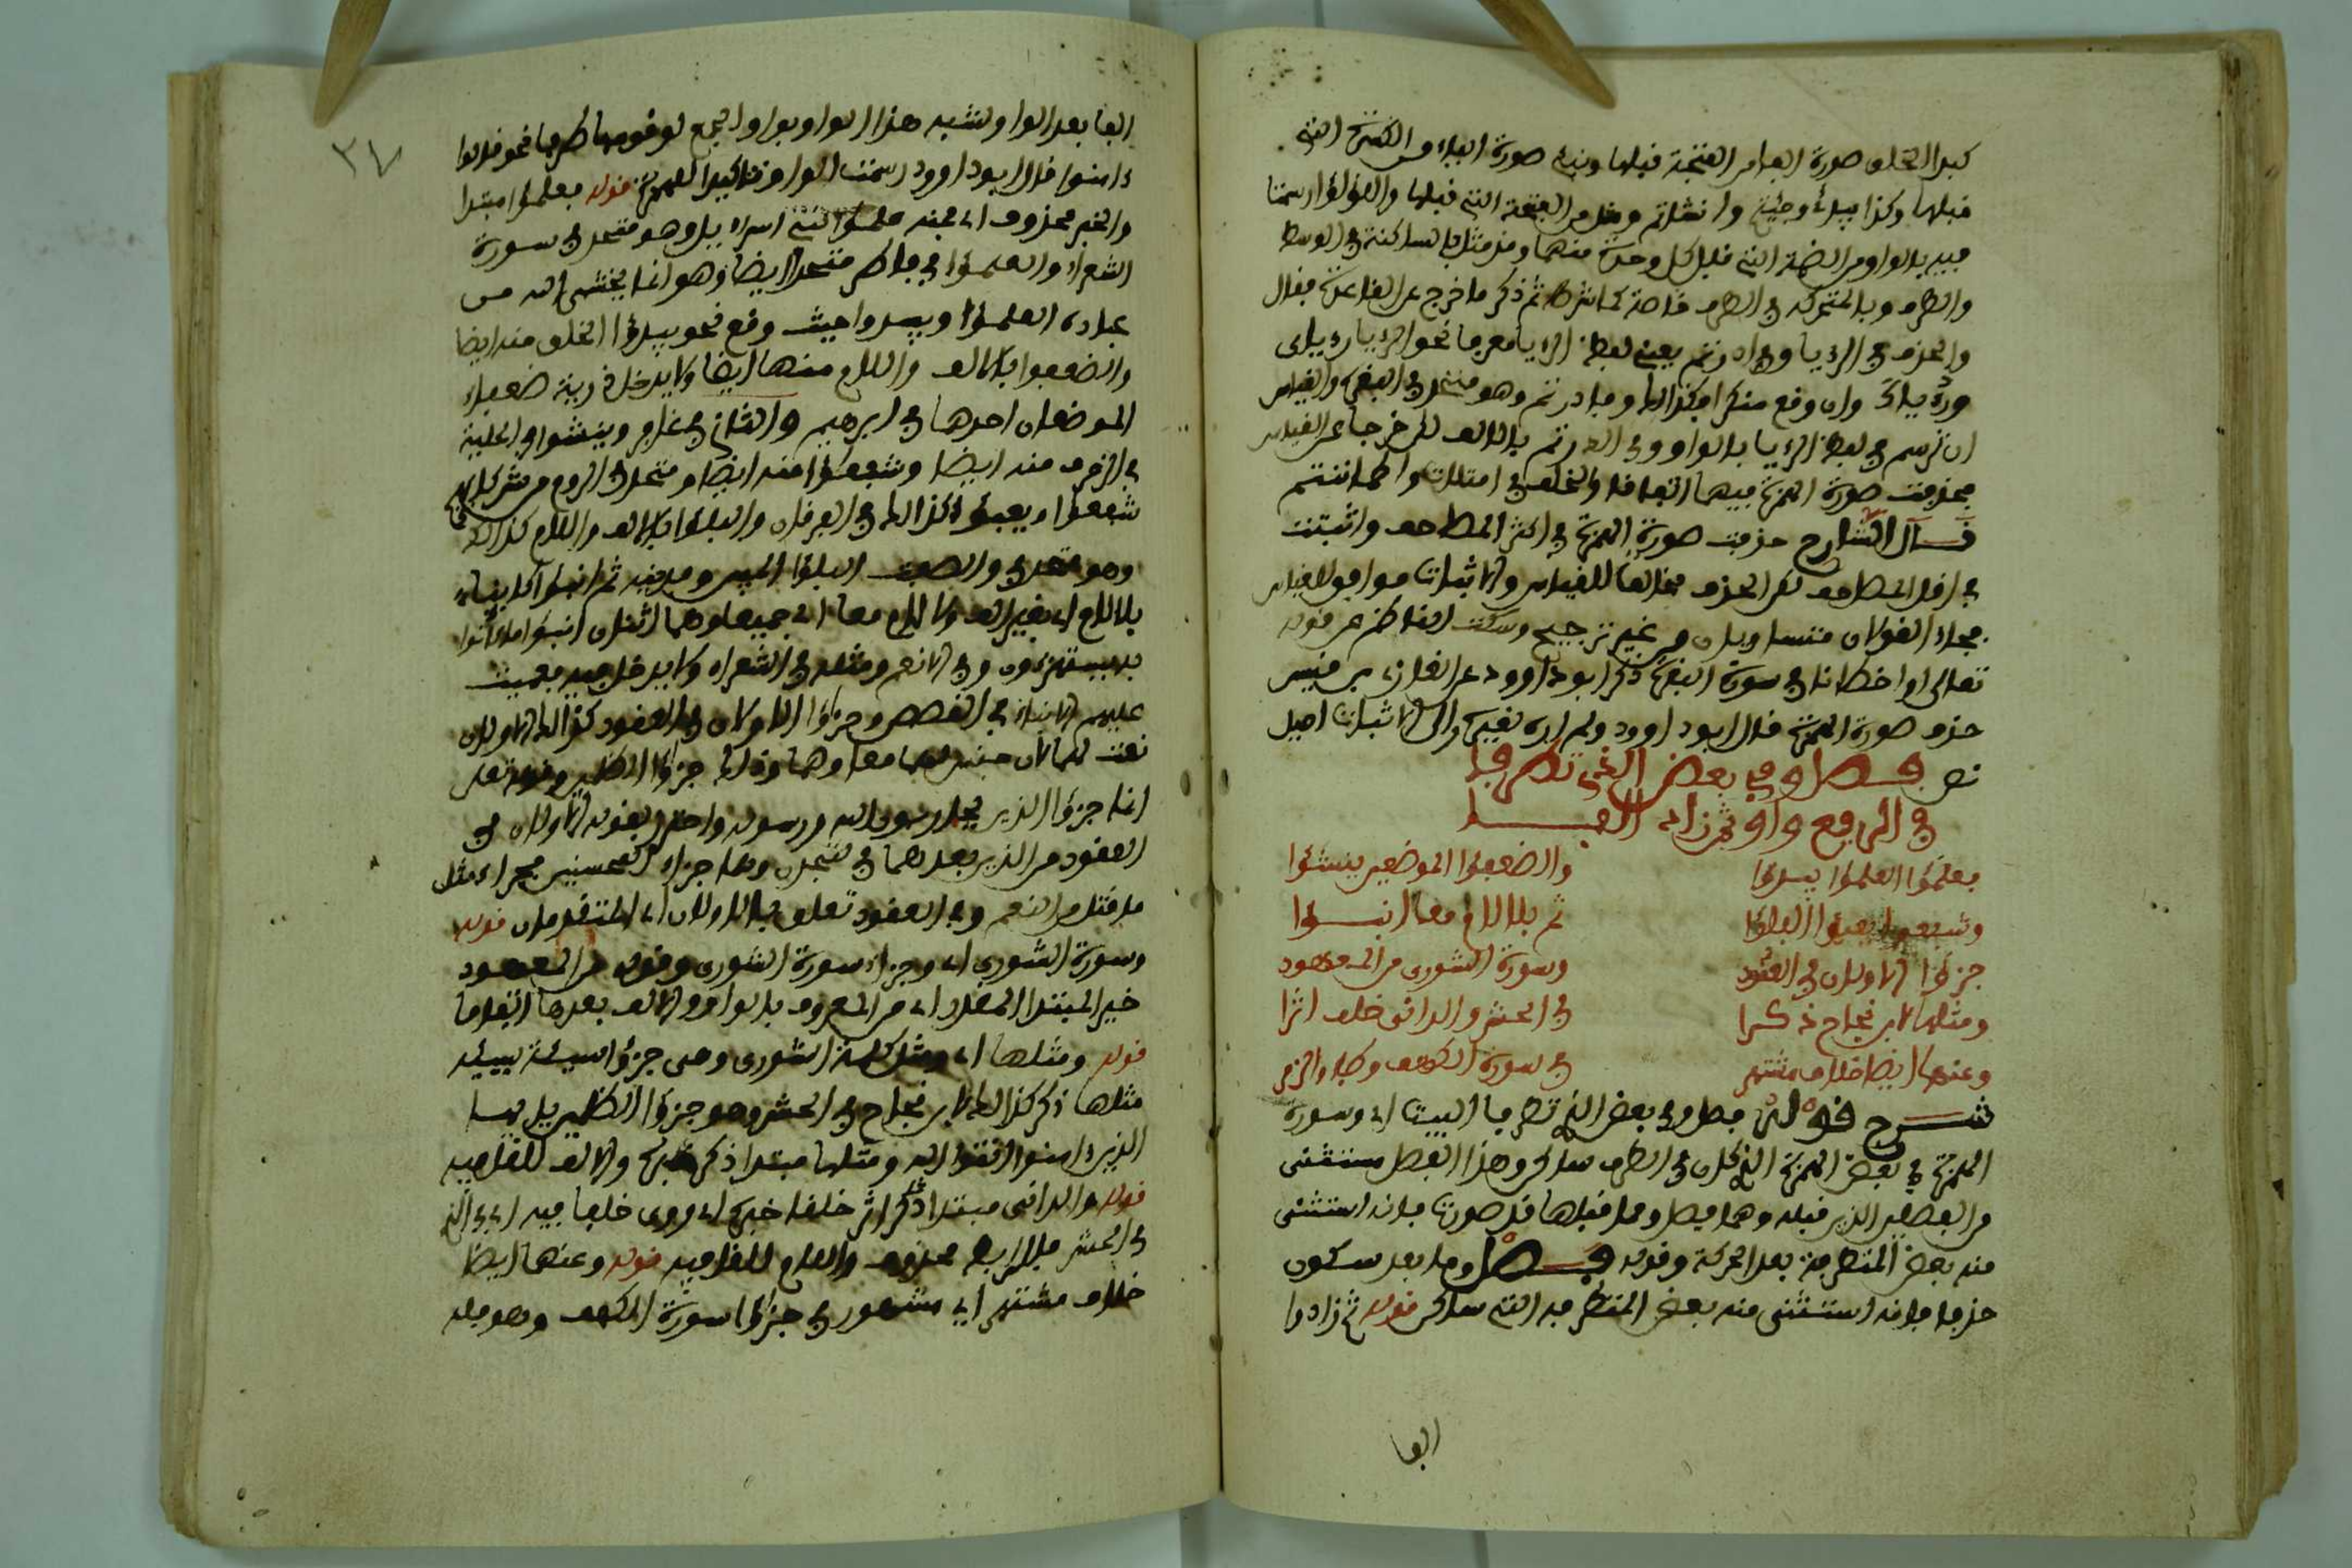 كبدا الخلق صورة الهمز الفتحة قبلها وينبئ صورة الياء من الكسرة التي
قبلها وكذا يبدئ وجئت وأنشأتم ومثل من الفتحة التي قبلها واللؤلؤ ارسمنا
فيه بالواو من الضمة التي قبل كل وحدة منهما ومن مثل بالساكنة في الوسط
والطرف وبالمتحركة في الطرف خاصة كما شرط ثم ذكر ما خرج عن القاعدة فقال
والحذف في الرءيا وفي ادارءتم يعني لفظ الرءيا معرفا نحو الرءيا رءياى
ورءياك وان وقع منكرا فكذالك وفادارءتم وهو متحد في البقرة والقياس
ان ترسم في لفظ الرءيا بالواو وفى ادارءتم بالالف لكن خرجا عن القياس
فحذفت صورة الهمزة فيهما اتفاقا والخلف في امتلأت واطمأننتم
قال الشارح حذفت صورة الهمزة في اكثر المصاحف واثبتت
في اقل المصاحف لكن الحذف مخالفا للقياس والاثبات موافق للقياس
فجاء القولان متساويان من غير ترجيح وسكت الناظم عن قوله
تعالى او اخطأنا في سورة البقرة ذكر ابو داوود عن الغازى بن قيس
حذف صورة الهمزة قال ابو داوود ولم اره لغيره والى الاثبات اميل
نص فصل وفي بعض الذى تطرفا
في الرفع واو ثم زادوا الفا
فعلمؤا العلمؤا يبدؤا والضعفؤا الموضعين ينشؤا
وشفعؤا يعبؤا البلؤا ثم بلا لام معا انبؤا
جزؤا الاولان في العقود وسورة الشورى من المعهود
ومثلها لابن نجاح ذكرا في الحشر والدانى خلف اثرا
وعنهما ايضا خلاف مشتهر في سورة الكهف وطه والزمر
شرح قوله فصل وفي بعض الذى تطرفا البيت اى وسورة
الهمزة في بعض الهمزة الذى كان في الطرف ساكن وهذا الفصل مستثنى
من الفصلين الذين قبله وهما فصل وما قبلها قد صورت فانه استثنى
منه بعض المتطرفة بعد الحركة وقوله فصل وما بعد سكون
حذفا فانه استثنى منه بعض المتطرفه التي ساكن قوله ثم زادوا
الفا
٣٤
الفا بعد الواو لتشبه هذا الواو بواو الجمع لوقوعها طرفا نحو قالوا
ءامنوا قال ابو داوود رسمت الواو تاكيدا للهمزة قوله فعلمؤا مبتدا
والخبر محذوف اى فمنه علمؤا بنى اسراءيل وهو متحد في سورة
الشعراء والعلمؤا في فاطر متحد ايضا وهو انما يخشى الله من
عباده العلمؤا ويبدؤا حيث وقع نحو يبدؤا الخلق منه ايضا
والضعفؤا بالالف واللام منها ايضا ولا يدخل ذرية ضعفاء
الموضعان احدهما في ابرهيم والثاني في غافر وينشؤا في الحلية
في الزخرف منه ايضا وشفعؤا منه ايضا ومتحد في الروم من شركائهم
شفعؤا ويعبؤا كذالك في الفرقان والبلؤا بالالف واللام كذالك
وهو متحد في والصفت البلؤا المبين وفديناه ثم انبؤا كلا بناء
بلا لام اى بغير الف ولا لام معا اى جميعا وهما اثنان انبؤا ما كانوا
به يستهزءون وفي الانعم ومثله في الشعراء ولا يدخل فيه فعميت
عليهم الانباء في القصص وجزؤا الاولان في العقود كذالك الاولان
نعت لهما لان جنس لهما معا وهما وذلك جزؤا الظلمين وقوله تعلى
انما جزؤا الذين يحاربون الله ورسوله واحترز بقوله الاولان في
العقود من الذين بعدهما في متحدن وهما جزاء المحسنين فجزاء مثل
ما قتل من النعم وفي العقود تعلق بالاولان اى المتقدمان قوله
وسورة الشورى اى وجزاء سورة الشورى وقوله من المعهود
خبر المبتدا المقدر اى من المعروف بالواو والالف بعدها اتفاقا
قوله ومثلها اى ومثل كلمة الشورى وهى جزؤا سيئة سيئة
مثلها ذكر كذالك لابن نجاح في الحشر وهو جزؤا الظلمين يايها
الذين ءامنوا اتقوا الله ومثلها مبتدا ذكر خبره والالف للقافية
قوله والدانى مبتدا ذكر اثر خلفا خبره اى روى خلفا فيه اى في الذى
في الحشر فالرابط محذوف والالف للقافية قوله وعنهما ايضا
خلاف مشتهر اى مشهور في جزؤا سورة الكهف وهو فله